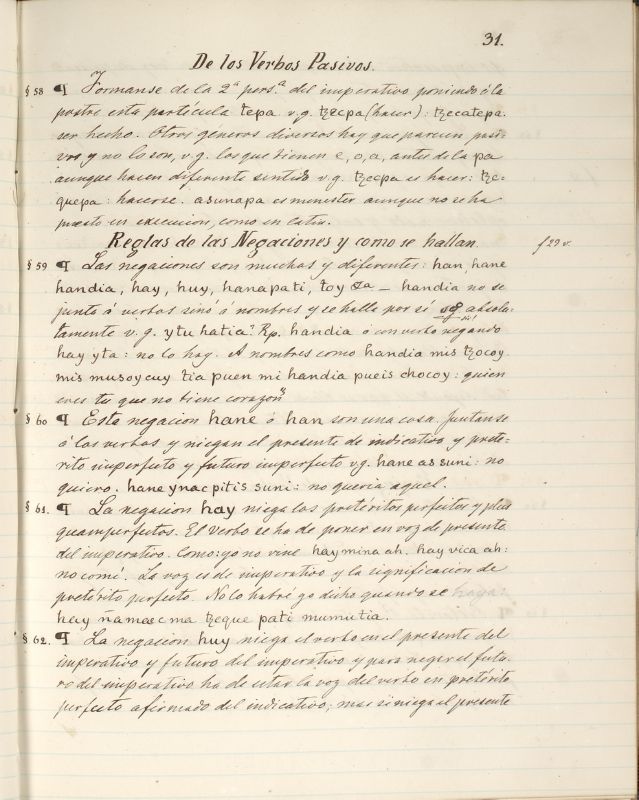 31.
De los Verbos Pasivos.
§ 58 ¶ Formanse de la 2ª persª del imperativo poniendo á la
postre esta partícula tepa v.g. tzecpa (hacer): tzecatepa.
ser hecho. Otros géneros diversos hay que parecen pasi-
vos y no lo son, v.g. los que tienen e, o, a, antes de la pa
aunque hacen diferente sentido v.g. tzecpa es hacer: tze-
quepa: hacerse. asunapa es menester aunque no se ha
puesto en execucion, como en latin.
Reglas de las Negaciones y como se hallan. f 29 v.
§ 59 ¶ Las negaciones son muchas y diferentes: han, hane
handia, hay, huy, hanapati, toy — handia no se
junta á verbos sinó á nombres y se halla por sí absolu-
tamente v.g. ytu hatia? Rp. handia ó con verbo negando
hay yta: no lo hay. A nombres como handia mis tzocoy.
mis musoycuy tia puen mi handia pueis chocoy: quien
eres tu que no tiene corazon?
§ 60 ¶ Esta negacion hane ó han son una cosa. Juntanse
á los verbos y niegan el presente de indicativo y preté-
rito imperfecto y futuro imperfecto v.g. hane as suni: no
quiero. hane ynac pitis suni: no queria aquel.
§ 61. ¶ La negacion hay niega los pretéritos perfectos y plus
quamperfectos. El verbo se ha de poner en voz de presente
del imperativo. Como: yo no vine hay mina ah. hay vica ah:
no comí. La voz es de imperativo y la significacion de
pretérito perfecto. No lo habré yo dicho quando se haya:
hay ñamaec ma tzeque pati mumutia.
§ 62. ¶ La negacion huy niega el verbo en el presente del
imperativo y futuro del imperativo y para negar el futu-
ro del imperativo ha de estar la voz del verbo en pretérito
perfecto afirmado del indicativo; mas si niega el presente